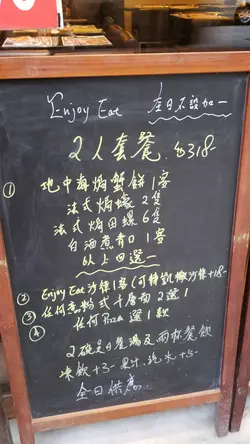 Enjoy Eat 全日不設加一
2人套餐 $318-
① 地中海焗蟹餅1客
法式焗蠔2隻
法式焗田螺6隻
白酒煮青口1客
以上回選一
② Enjoy Eat沙律1客(可轉凱撒沙律+18-
③ 任何意粉或千層面2選1
④ 任何Pizza選1款
2碗是日餐湯及兩杯餐飲
凍飲+3- 果汁、汽水+5-
全日供應